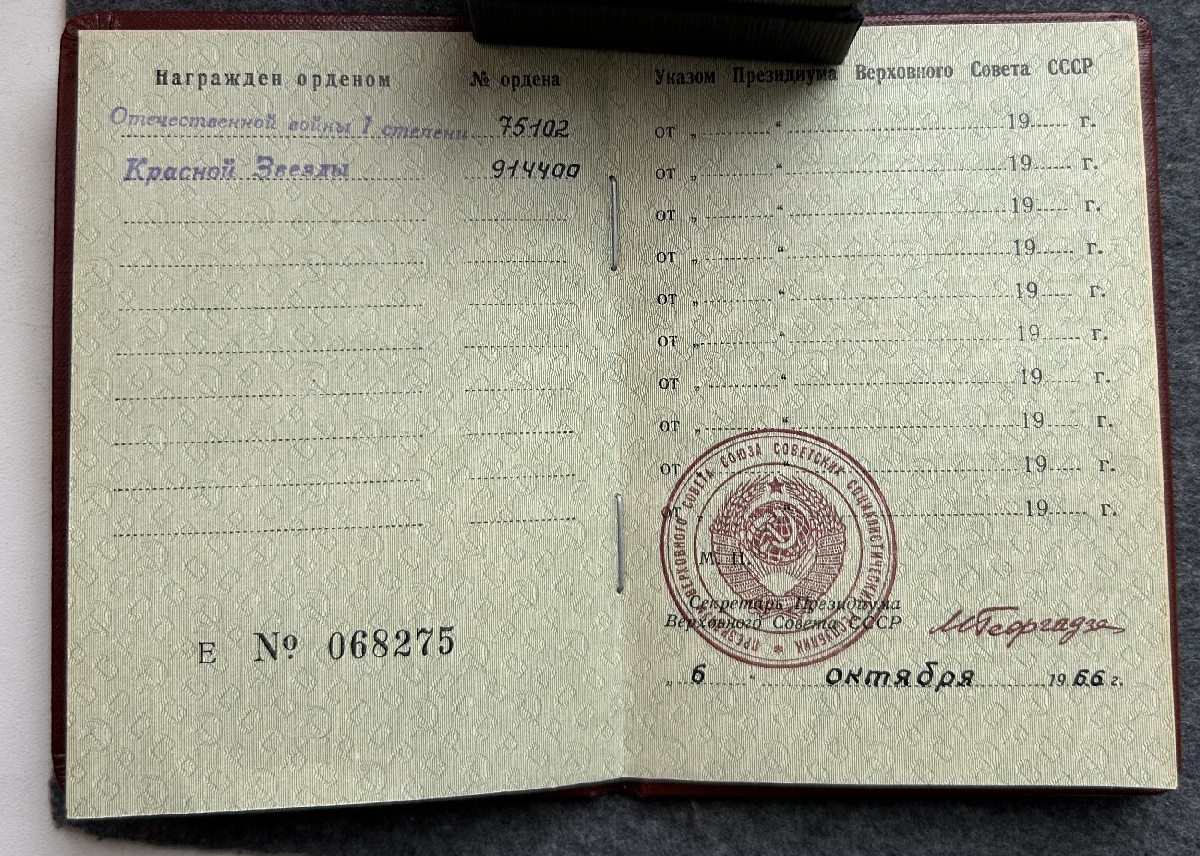 Награжден орденом № ордена
Отечественной войны 1 степени 75102
Красной Звезды 914400
Е № 068275
Указом Президиума Верховного Совета СССР
от „ “ 19 г.
от „ “ 19 г.
от „ “ 19 г.
от „ “ 19 г.
от „ “ 19 г.
от „ “ 19 г.
от „ “ 19 г.
от „ “ 19 г.
от “ 19 г.
от „ “ 19 г.
ПРЕЗИДИУМ ВЕРХОВНОГО СОВЕТА СОЮЗА СОВЕТСКИХ СОЦИАЛИСТИЧЕСКИХ РЕСПУБЛИК
М. П.
Секретарь Президиума
Верховного Совета СССР М Георгадзе
„ 6 “ октября 1966 г.